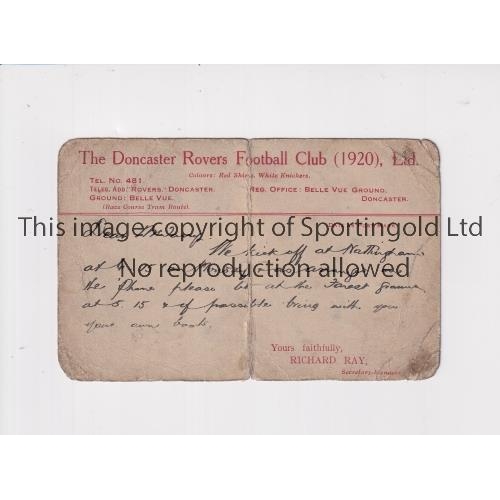 The Doncaster Rovers Football Club (1920), Ltd.
Colours: Red Shirts, White Knickers.
TEL. NO. 481.
TELEG. ADD. "ROVERS," DONCASTER.
GROUND: BELLE VUE.
(Race Course Tram Route).
REG. OFFICE: BELLE VUE GROUND,
DONCASTER.
This image copyright of Sportingold Ltd
Dear
We kick off at Nottingham
at
No reproduction without permission
the 'phone please be at the Forest ground
at 5.15 & if possible bring with you
your own boots.
Yours faithfully,
RICHARD RAY,
Secretary-Manager